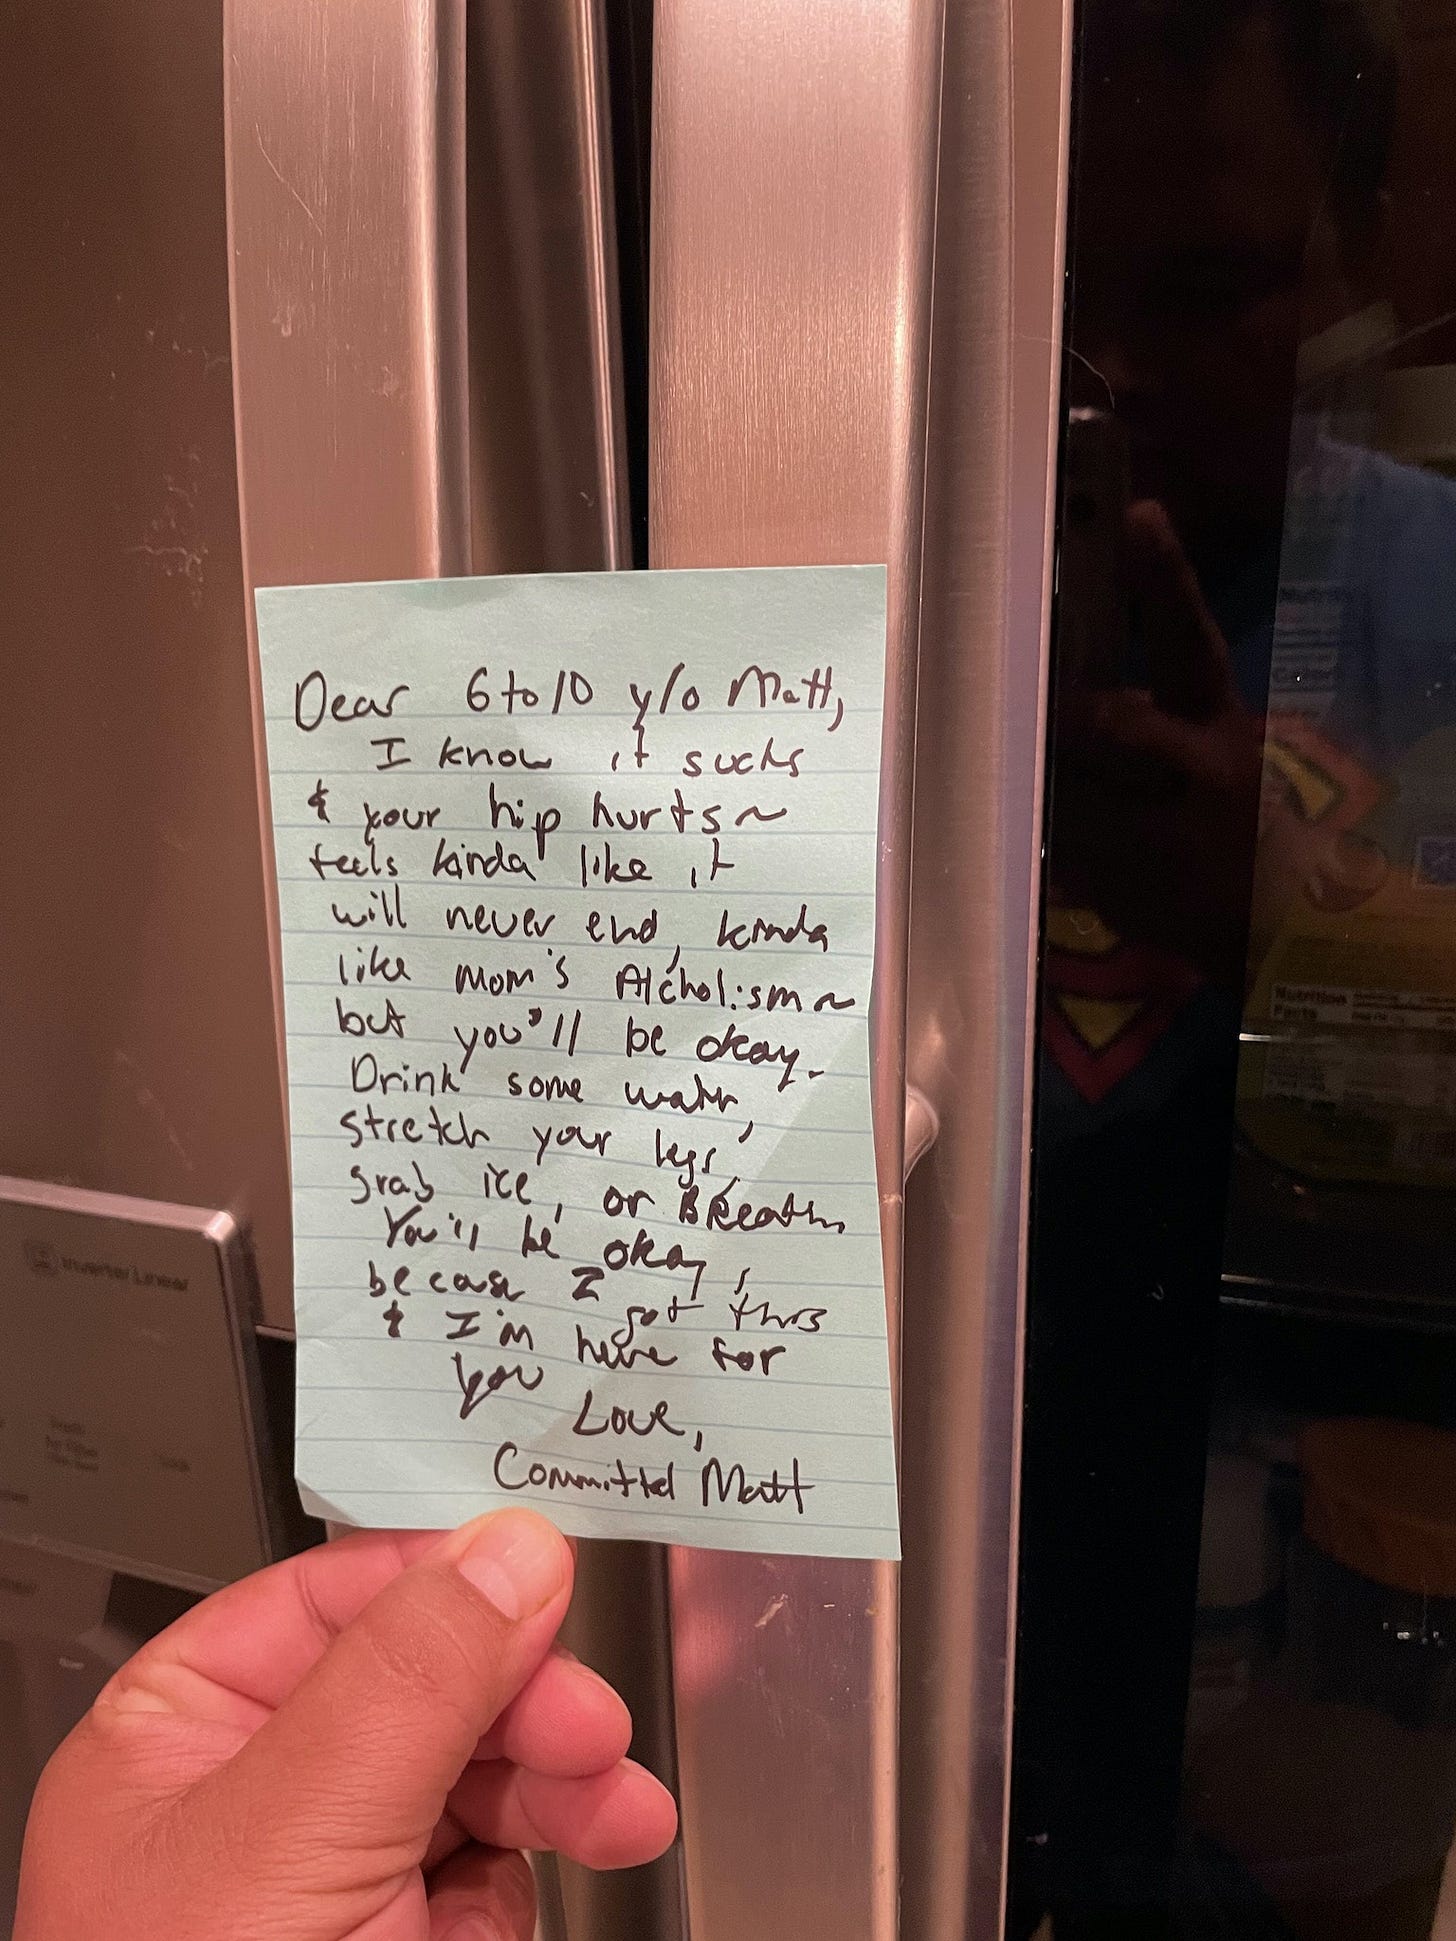 Dear 6 to 10 y/o Matt,
I know it sucks
& your hip hurts ~
feels kinda like it
will never end, kinda
like Mom's Alcholism ~
but you'll be okay.
Drink some water,
stretch your legs,
grab ice, or BReathe
You'll be okay,
because I got this
& I'm here for
you
Love,
Committed Matt
InverterLinear
Nutrition
Facts